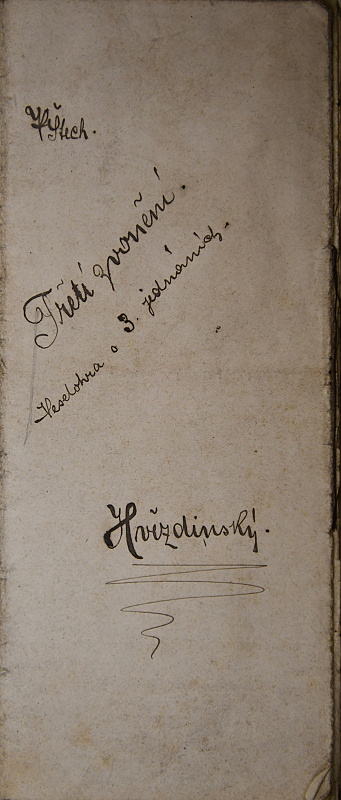 Štech.
Třetí zvonění.
Veselohra o 3. jednáních.
Hvězdinský.